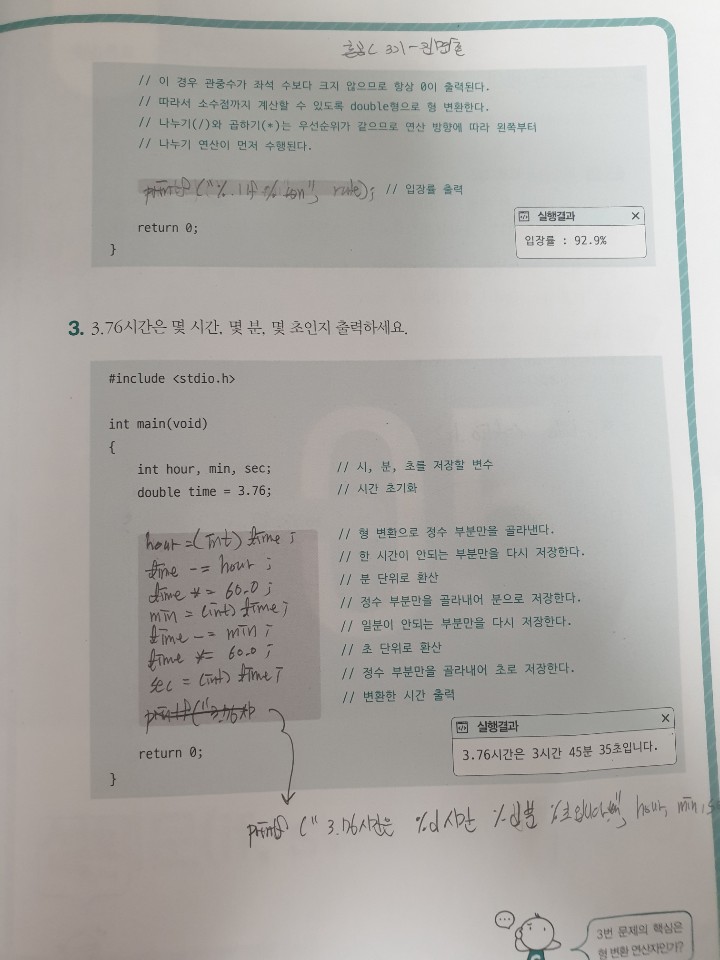 혼공C 3기-권면호
// 이 경우 관중수가 좌석 수보다 크지 않으므로 항상 0이 출력된다.
// 따라서 소수점까지 계산할 수 있도록 double형으로 형 변환한다.
// 나누기(/)와 곱하기(*)는 우선순위가 같으므로 연산 방향에 따라 왼쪽부터
// 나누기 연산이 먼저 수행된다.
printf ("%.1lf%% rate); // 입장률 출력
return 0;
}
실행결과
입장률 : 92.9%
3. 3.76시간은 몇 시간, 몇 분, 몇 초인지 출력하세요.
#include <stdio.h>
int main(void)
{
int hour, min, sec; // 시, 분, 초를 저장할 변수
double time = 3.76; // 시간 초기화
hour =(int) time ; // 형 변환으로 정수 부분만을 골라낸다.
time -= hour ; // 한 시간이 안되는 부분만을 다시 저장한다.
time *= 60.0 ; // 분 단위로 환산
min = (int) time ; // 정수 부분만을 골라내어 분으로 저장한다.
time -= min ; // 일분이 안되는 부분만을 다시 저장한다.
time *= 60.0 ; // 초 단위로 환산
sec = (int) time ; // 정수 부분만을 골라내어 초로 저장한다.
printf("3.76시 // 변환한 시간 출력
return 0;
}
실행결과
3.76시간은 3시간 45분 35초입니다.
printf (" 3.76시간은 %d시간 %d분 %초입니다.", hour, min, s
3번 문제의 핵심은
형 변환 연산자인가?